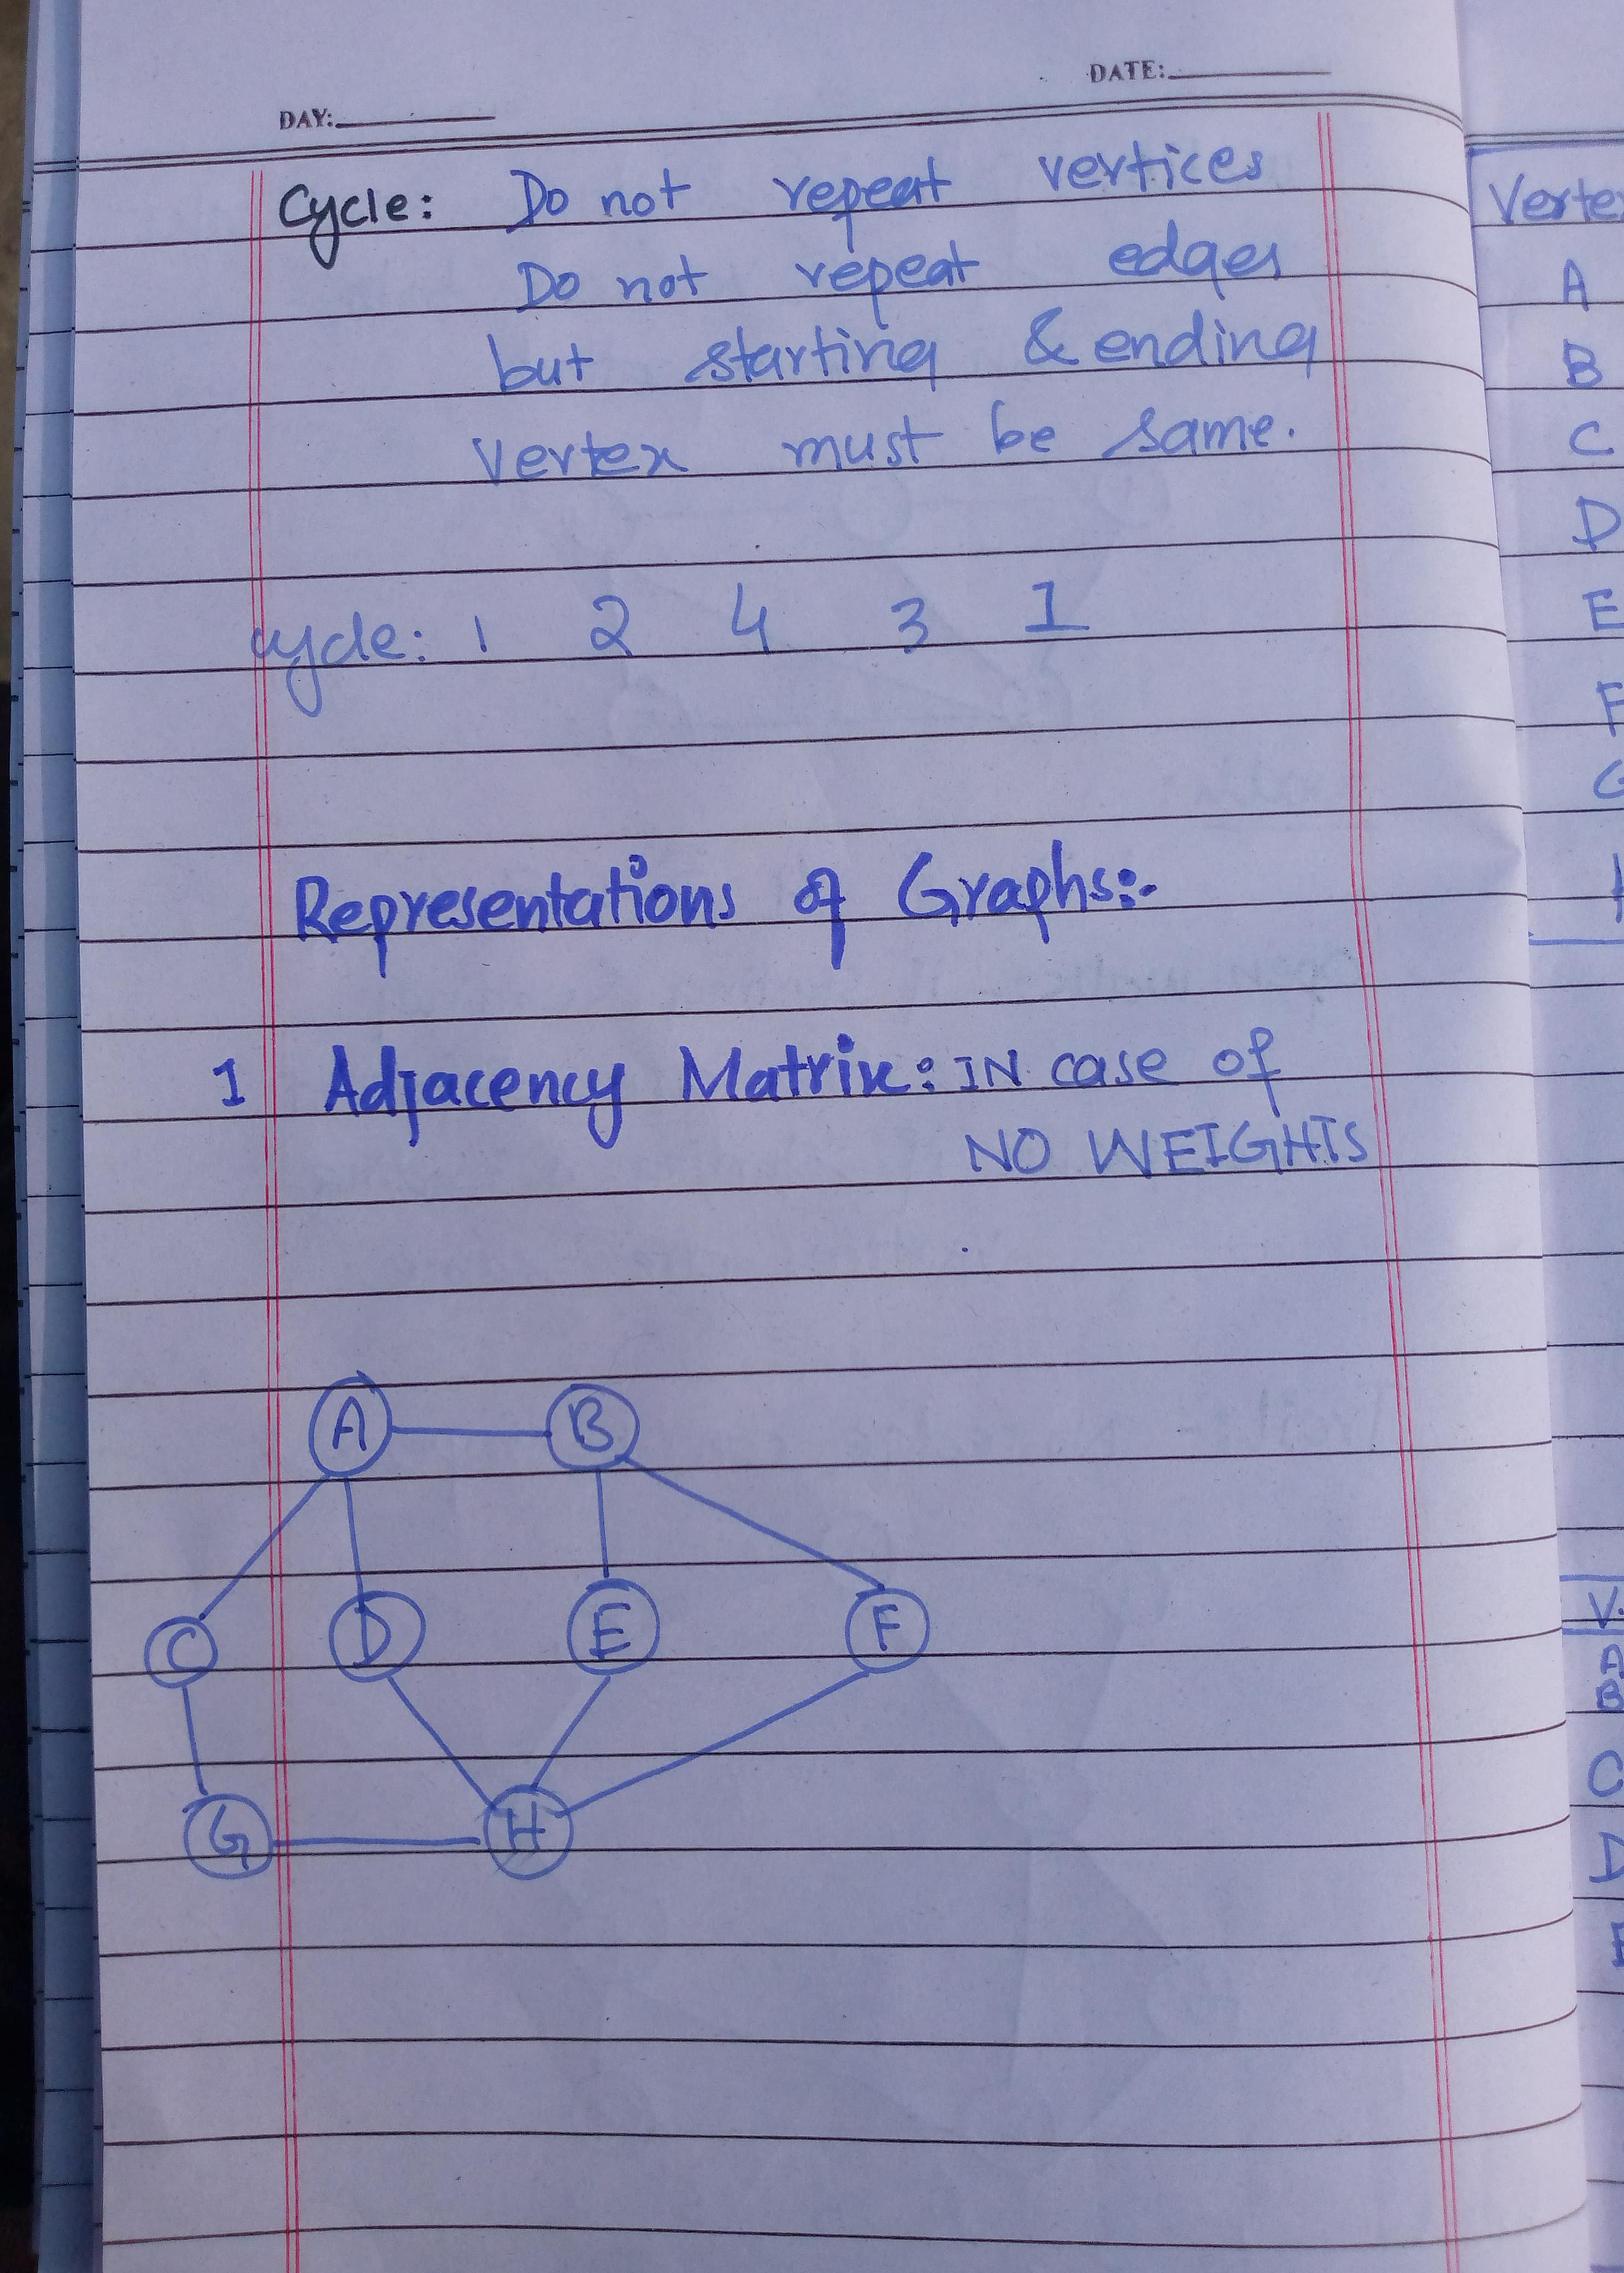 DAY:
DATE:
Cycle: Do not repeat vertices
Do not repeat edges
but starting & ending
vertex must be same.
cycle: 1 2 4 3 1
Representations of Graphs:-
1 Adjacency Matrix: IN case of
NO WEIGHTS
A B
C D E F
G H
A
B
C
D
E
F
V.
A
B
C
D
E